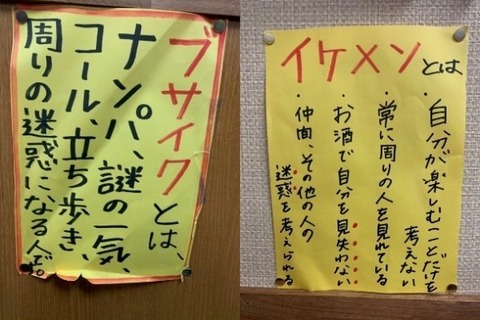 ブサイクとは、
ナンパ、謎の一気、
コール、立ち歩き、
周りの迷惑になる人だ。
イケメンとは
・自分が楽しむことだけを
考えない
・常に周りの人を見れている
・お酒で自分を見失わない
・仲間、その他の人の
迷惑を考えられる